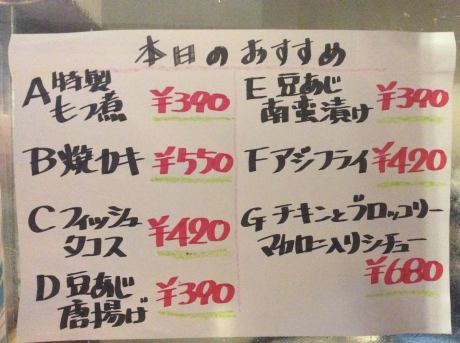 本日のおすすめ
A 特製
もつ煮 ¥390
B 焼カキ ¥550
C フィッシュ
タコス ¥420
D 豆あじ
唐揚げ ¥390
E 豆あじ
南蛮漬け ¥390
F アジフライ ¥420
G チキンとブロッコリー
マカロニ入りシチュー
¥680